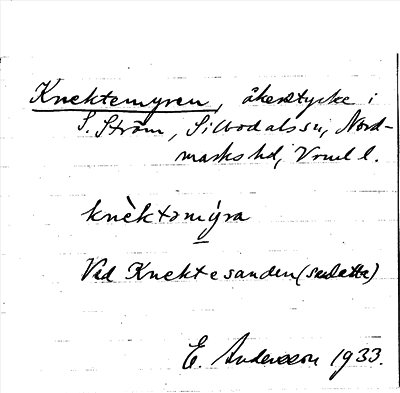 Knektemyren, åkerstycke i
S. Ström, Silbodals sn, Nord-
marks hd, Vrml l.
knèktəmýra
Vid Knektesanden (se detta)
E. Andersson 1933.